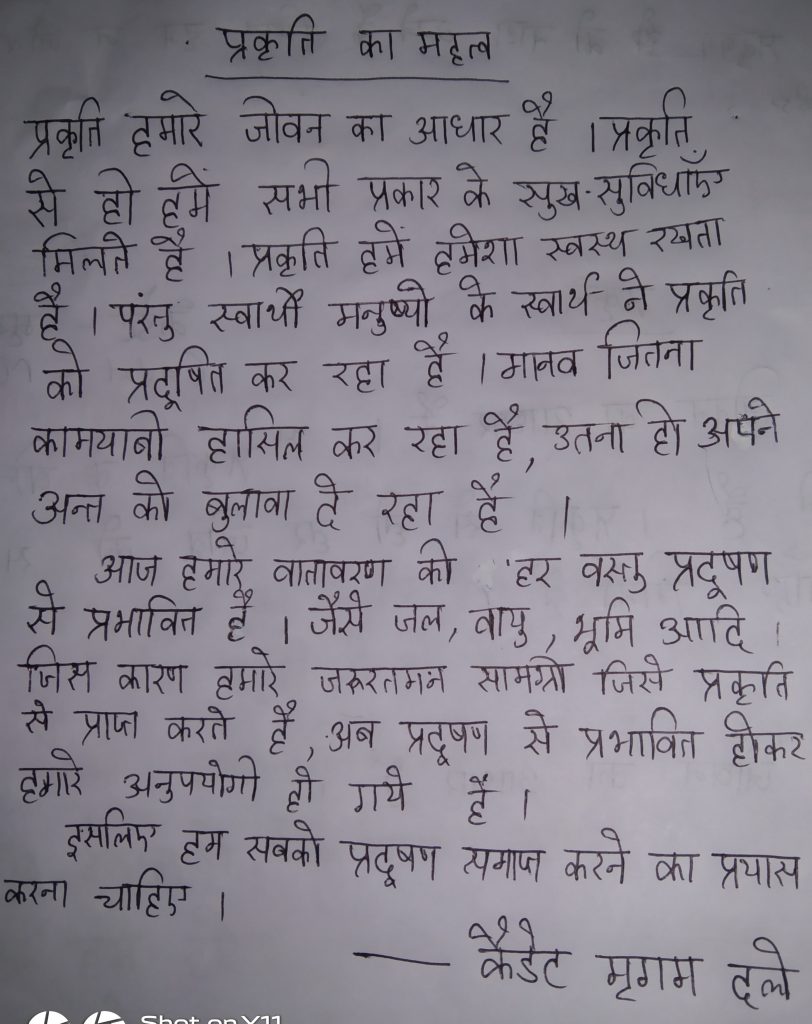 प्रकृति का महत्व
प्रकृति हमारे जीवन का आधार है । प्रकृति
से ही हमें सभी प्रकार के सुख-सुविधाएँ
मिलते है । प्रकृति हमें हमेशा स्वस्थ रखता
है । परंतु स्वार्थी मनुष्यो के स्वार्थ ने प्रकृति
को प्रदूषित कर रहा है । मानव जितना
कामयाबी हासिल कर रहा है, उतना ही अपने
अन्त को बुलावा दे रहा है ।
आज हमारे वातावरण की हर वस्तु प्रदूषण
से प्रभावित है । जैसे जल, वायु, भूमि आदि ।
जिस कारण हमारे जरूरतमन सामग्री जिसे प्रकृति
से प्राप्त करते है, अब प्रदूषण से प्रभावित होकर
हमारे अनुपयोगी हो गये हैं ।
इसलिए हम सबको प्रदूषण समाप्त करने का प्रयास
करना चाहिए ।
— कैडेट मृगम दले
Shot on Y11